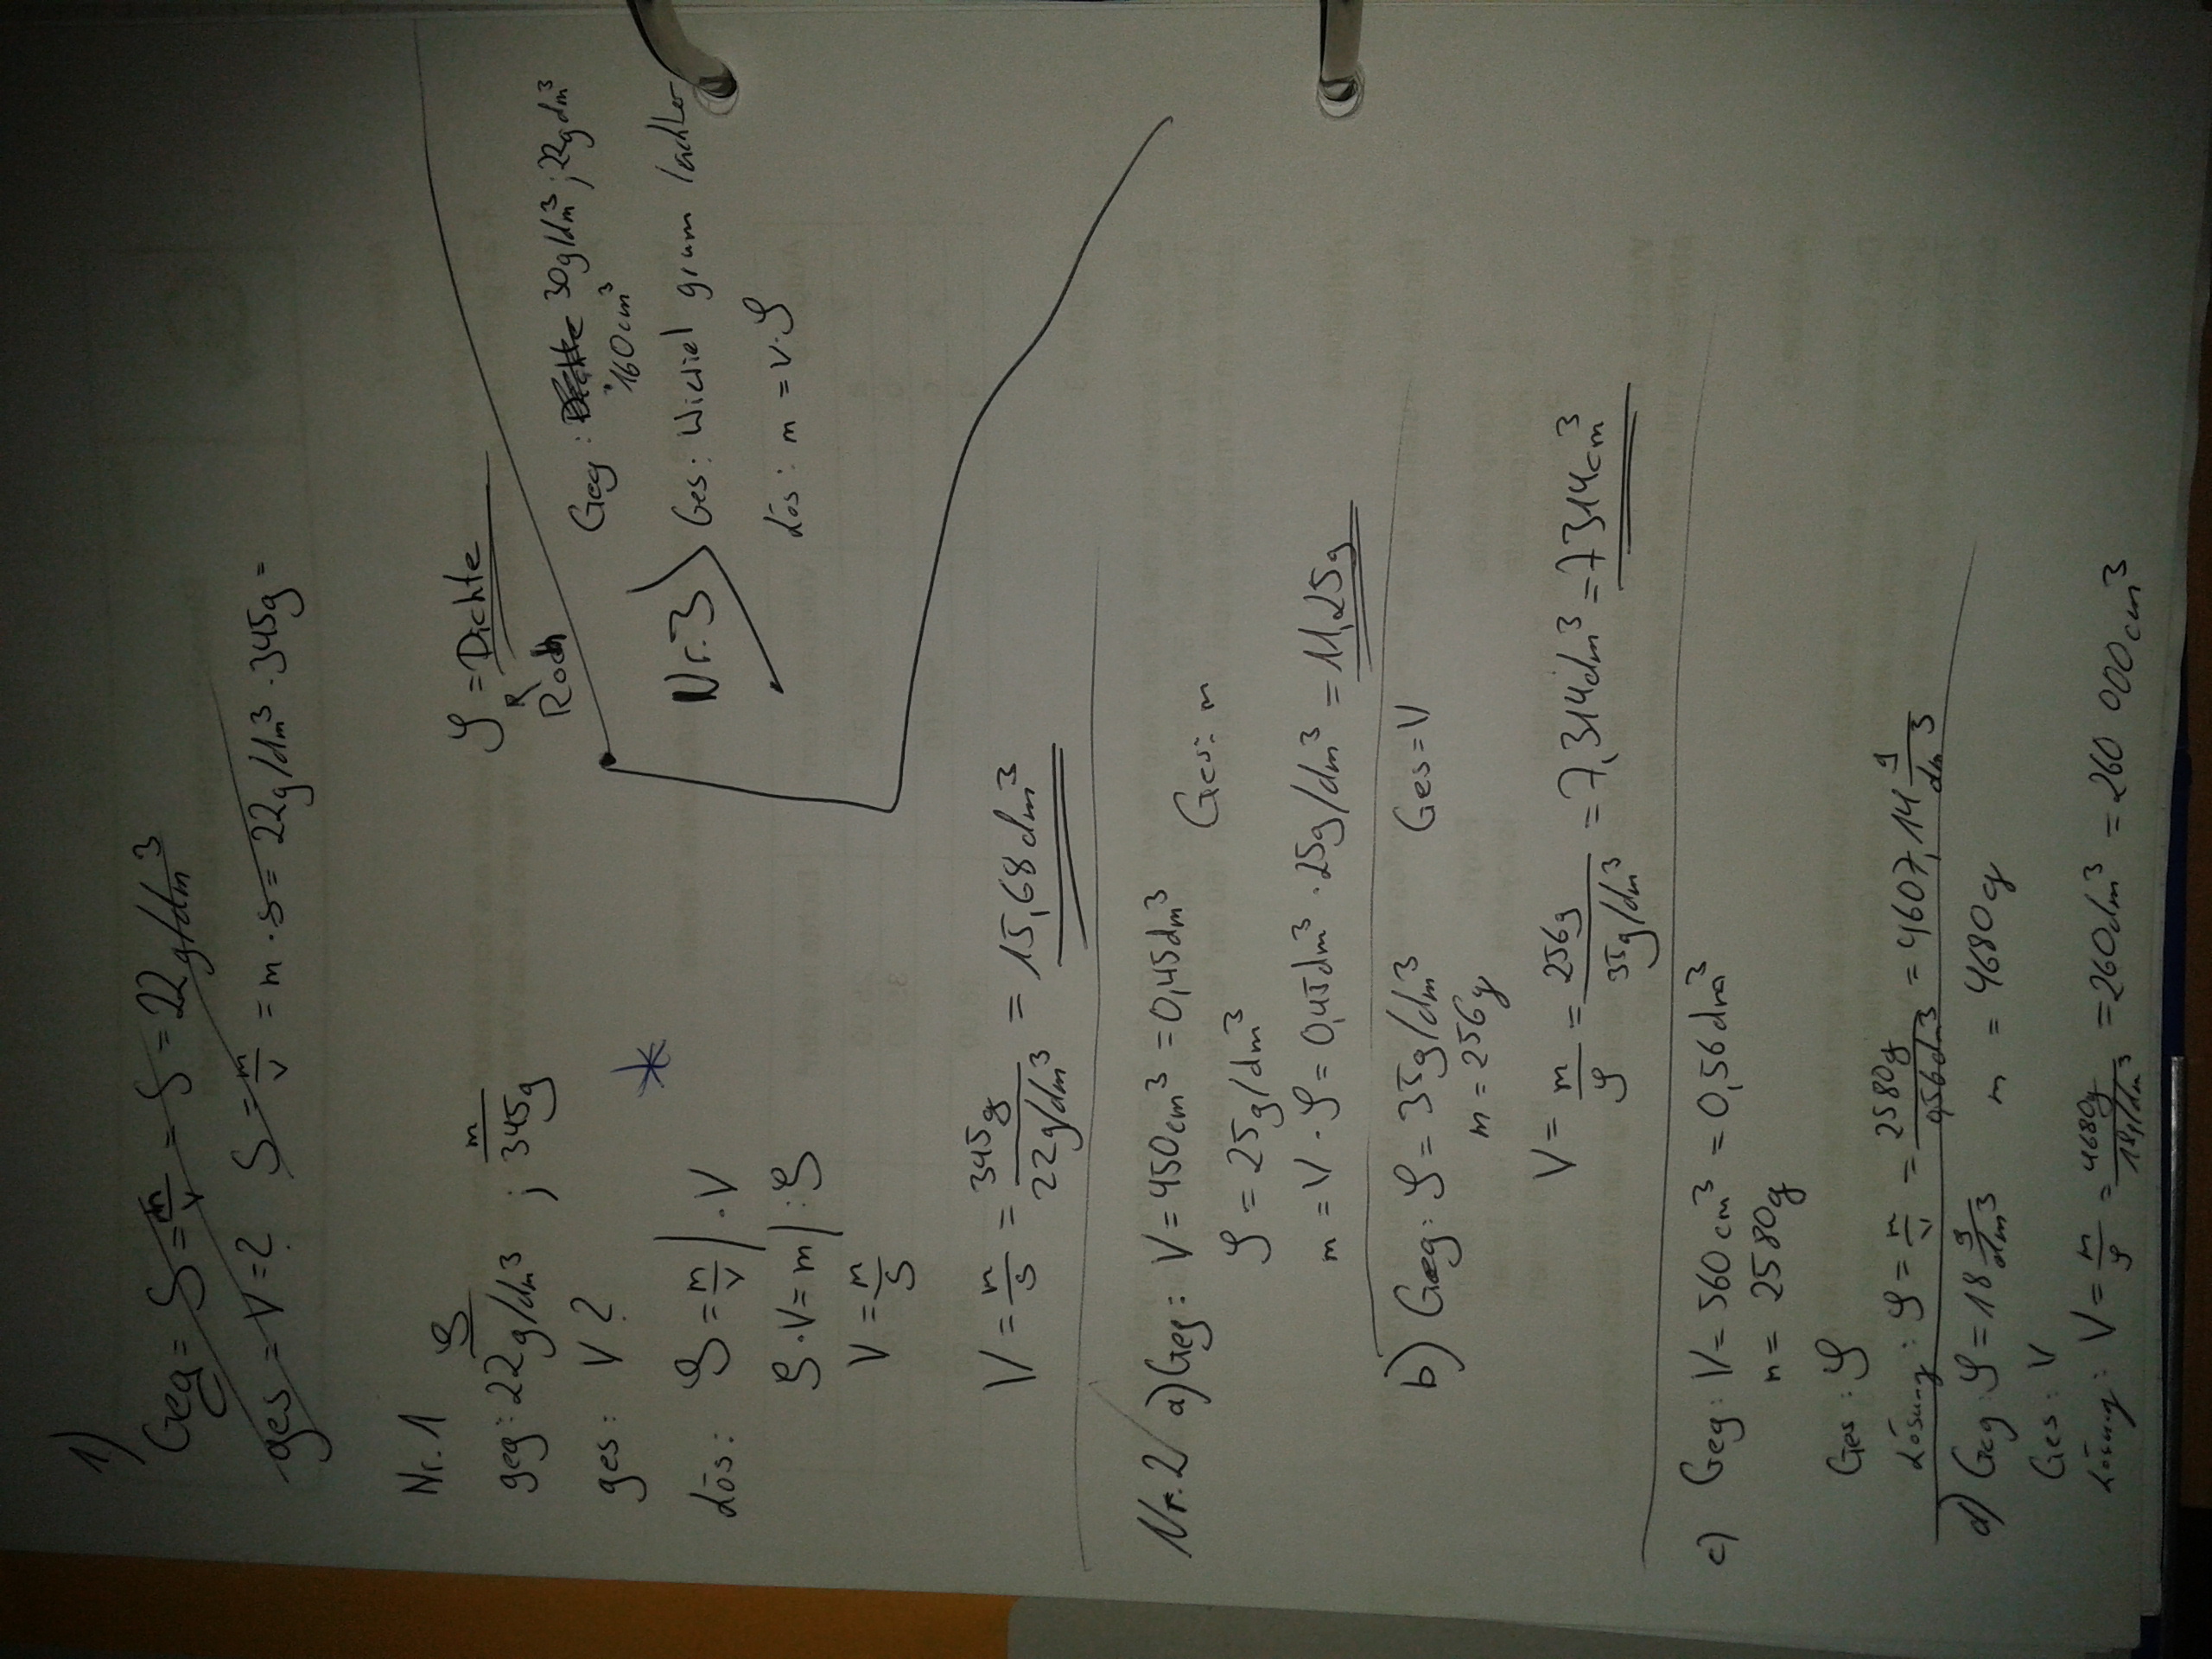 1)
Geg = ρ = m/V = ρ = 22 g/dm³
ges = V = ? ρ = m/V = m · ρ = 22g/dm³ · 345g =
ρ = Dichte
Roch
Nr. 1
ρ m
geg: 22g/dm³ ; 345g
ges: V ?
Lös: ρ = m/V | · V
ρ · V = m | : ρ
V = m/ρ
V = m/ρ = 345g / 22g/dm³ = 15,68 dm³
Nr. 3
Geg: Dichte 30g/dm³ ; 22g dm³
160cm³
Ges: Wieviel gramm
Lös: m = V · ρ
Nr. 2 a) Geg: V = 450cm³ = 0,45dm³ Ges: m
ρ = 25g/dm³
m = V · ρ = 0,45dm³ · 25g/dm³ = 11,25g
b) Geg: ρ = 35g/dm³ Ges = V
m = 256g
V = m/ρ = 256g / 35g/dm³ = 7,314dm³ = 7314cm³
c) Geg: V = 560cm³ = 0,56dm³
m = 2580g
Ges: ρ
Lösung: ρ = m/V = 2580g / 0,56dm³ = 4607,14 g/dm³
d) Geg: ρ = 18 g/dm³ m = 4680g
Ges: V
Lösung: V = m/ρ = 4680g / 18g/dm³ = 260dm³ = 260 000 cm³